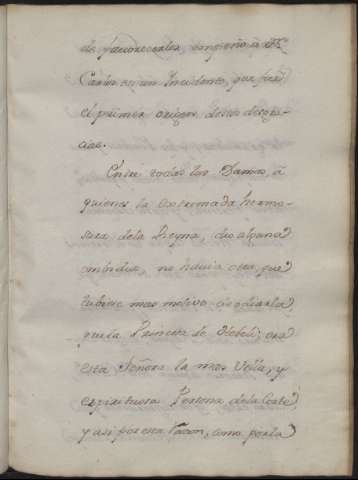 de favorecerla, empeño à Dⁿ
Carlos en un Incidente, que fue
el primer origen de sus desgra-
cias.
Entre todas las Damas, à
quienes la extremada hermo-
sura dela Reyna, dio alguna
embidia, no havia otra que
tubiese mas motivo de odiarla,
que la Princesa de Eboli; era
esta Señora la mas Vella, y
espirituosa Persona dela Corte,
y asi por esta razon, como por la